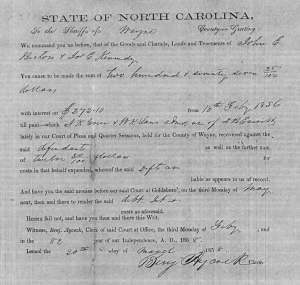 STATE OF NORTH CAROLINA,
To the Sheriff of Wayne County—Greeting:
We command you as before, that of the Goods and Chattels, Lands and Tenements of John C
& Jos E Kennedy
You cause to be made the sum of Two hundred & seventy seven
dollars,
with interest on $272.10 from 18th Feby 1856
till paid—which
lately in our Court of Pleas and Quarter Sessions, held for the County of Wayne, recovered against the
said defendants as well as the further sum
of Twelve dollars
costs in that behalf expended, whereof the said deft are liable as appears to us of record.
And have you the said moneys before our said Court at Goldsboro', on the third Monday of May
next, then and there to render the said
costs as aforesaid.
Herein fail not, and have you then and there this Writ.
Witness, Benj. Aycock, Clerk of said Court at Office, the third Monday of Feby and
in the 82 year of our Independence, A. D., 1858
Issued the 20th day of March 1858
Benj Aycock Clerk